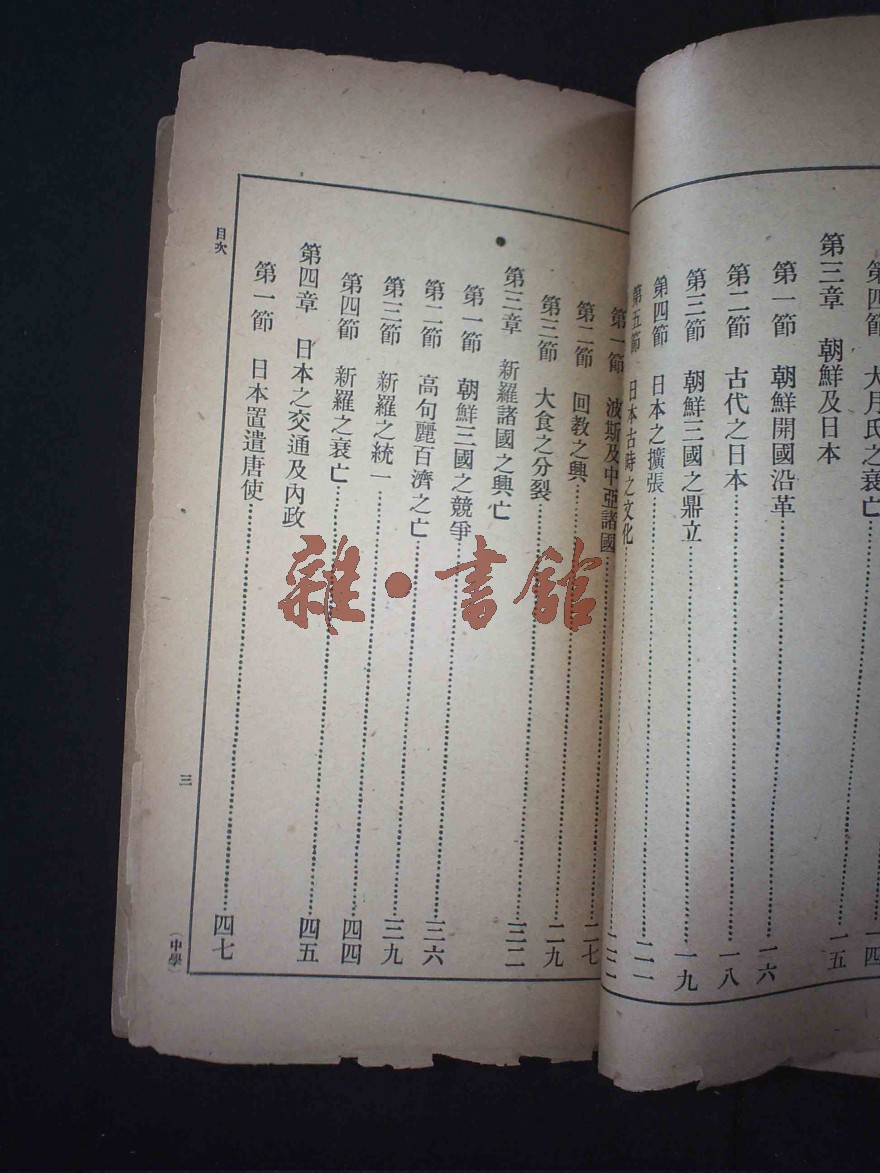 一四
第四節 大月氏之衰亡……一五
第三章 朝鮮及日本
第一節 朝鮮開國沿革……一六
第二節 古代之日本……一八
第三節 朝鮮三國之鼎立……一九
第四節 日本之擴張……二一
第五節 日本古時之文化……二二
第一節 波斯及中亞諸國……二七
第二節 回教之興……二九
第三節 大食之分裂……三二
第三章 新羅諸國之興亡
第一節 朝鮮三國之競爭……三六
第二節 高句麗百濟之亡……三九
第三節 新羅之統一……四四
第四節 新羅之衰亡……四五
第四章 日本之交通及內政
第一節 日本置遣唐使……四七
目次
三
(中學)
雜·書館